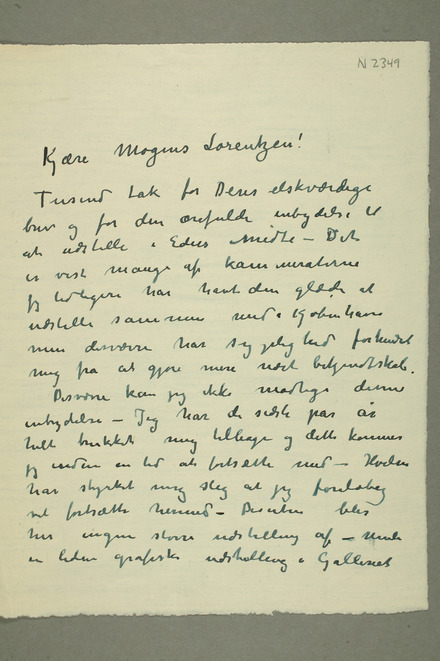 N 2349
Kjære Mogens Lorentzen!
Tusind tak for Deres elskværdige
brev og for den ærefulde inbydelse til
at udstille i Eders Midte – Det
er vist mange af kammeraterne
jeg tidligere har havt den glæde at
udstille sammen med i Kjøbenhavn
men desværre har sygelighed forhindret
mig fra at gjøre mere nært bekjendtskab.
Desværre kan jeg ikke modtage denne
inbydelse – Jeg har de sidste par år
helt trukket mig tilbage og dette kommer
jeg inden en tid at fortsætte med – Hvilen
har styrket mig slig at jeg foreløbig
vil fortsætte hermed – Desuten blir
her ingen større udstilling af –
en liden grafiske udstilling i Galleriet